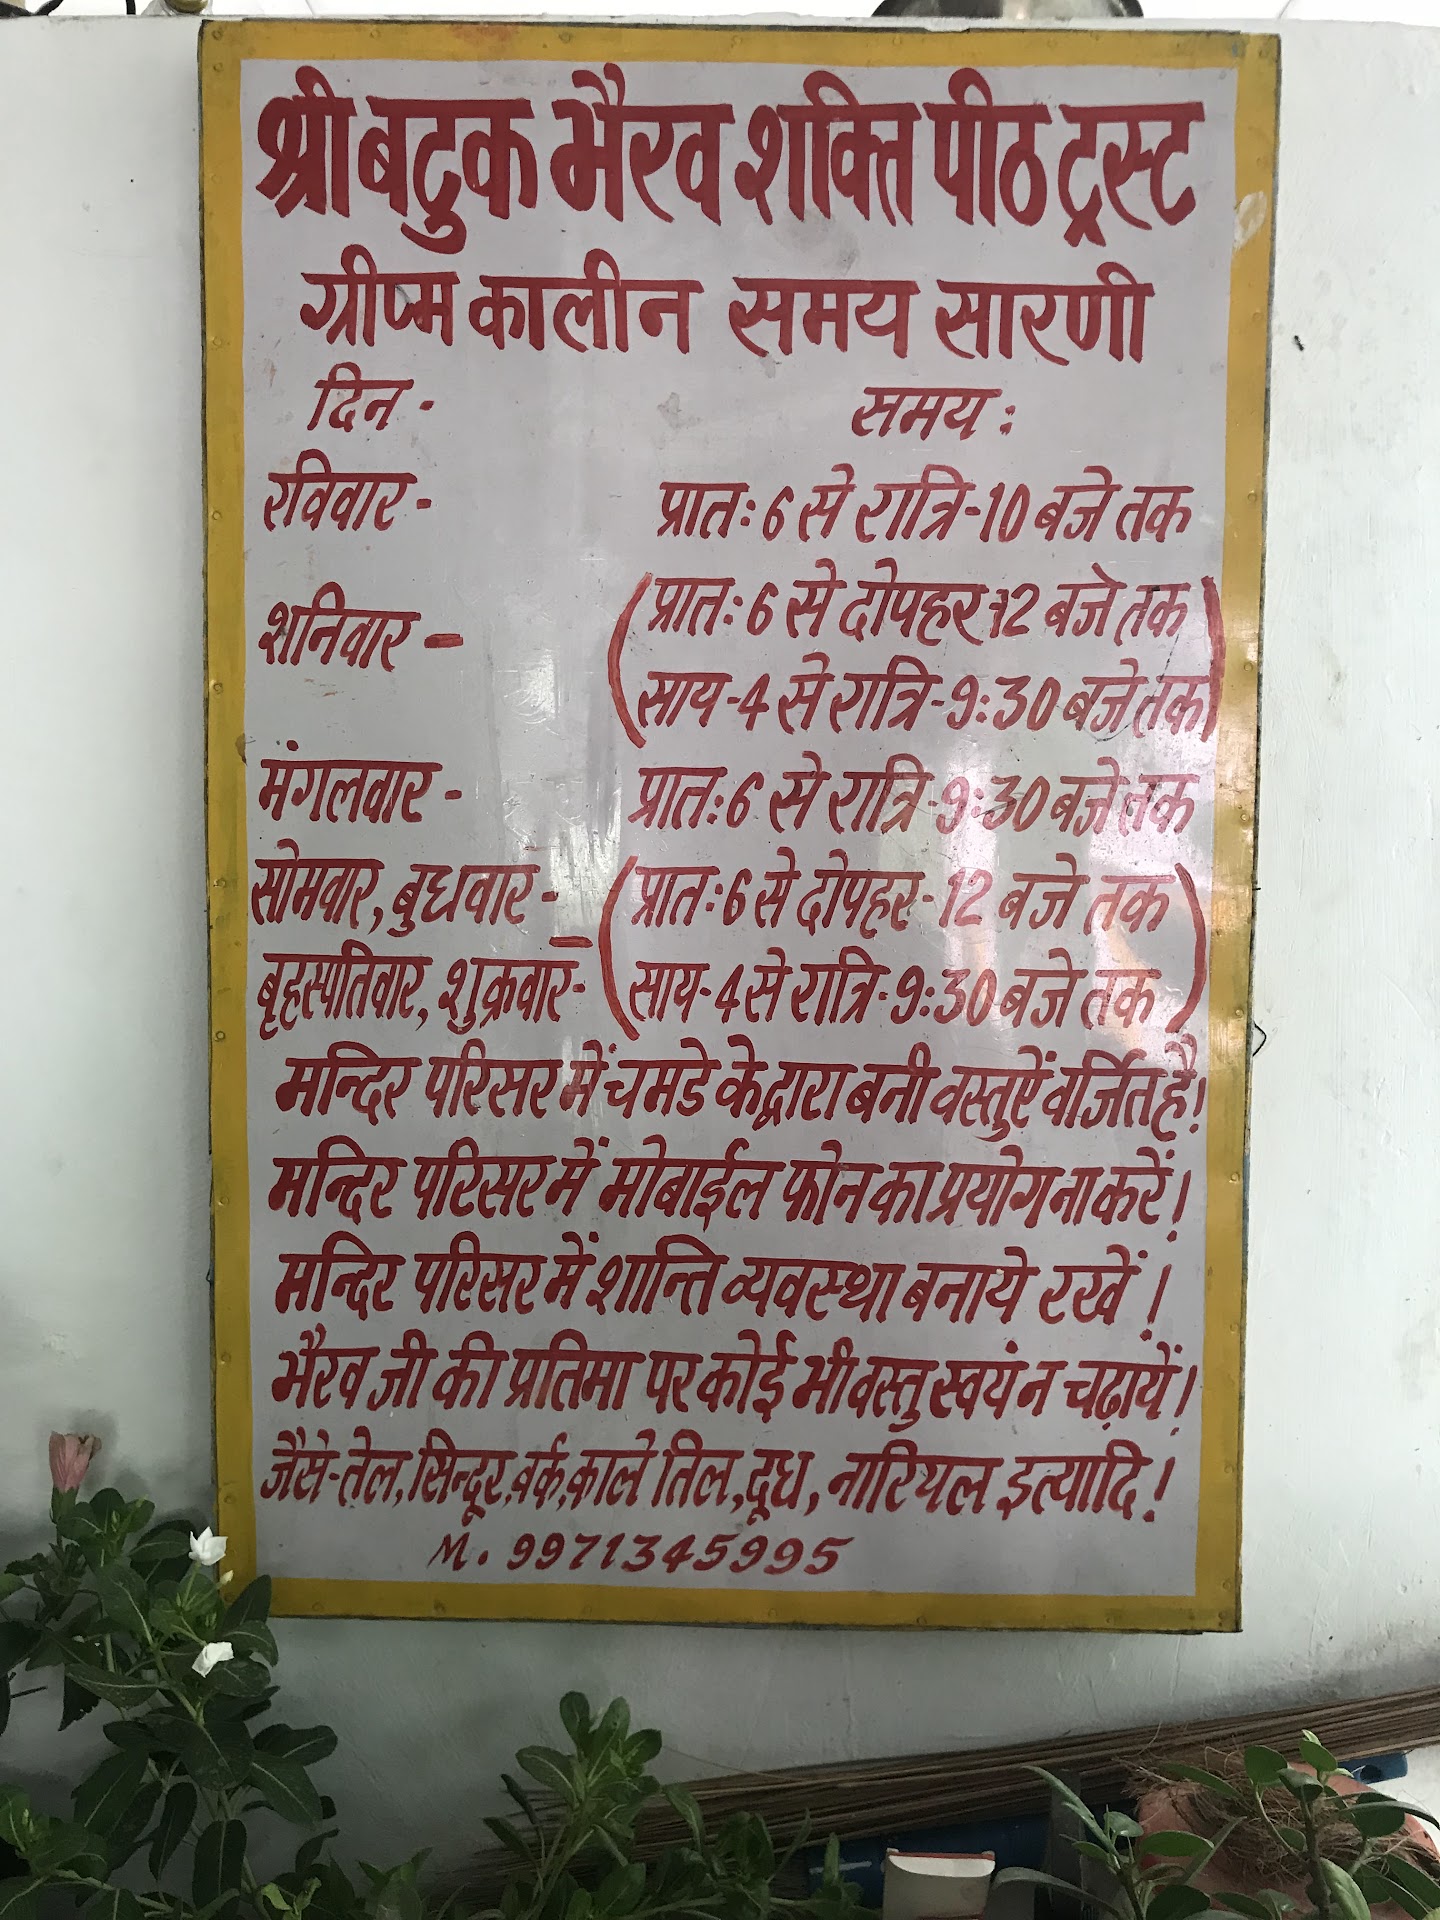 श्री बटुक भैरव शक्ति पीठ ट्रस्ट
ग्रीष्म कालीन समय सारणी
दिन - समय :
रविवार - प्रातः 6 से रात्रि-10 बजे तक
शनिवार - (प्रातः 6 से दोपहर-12 बजे तक
साय-4 से रात्रि-9:30 बजे तक)
मंगलवार - प्रातः 6 से रात्रि-9:30 बजे तक
सोमवार, बुधवार - (प्रातः 6 से दोपहर-12 बजे तक
बृहस्पतिवार, शुक्रवार- साय-4 से रात्रि-9:30 बजे तक)
मन्दिर परिसर में चमडे के द्वारा बनी वस्तुऐं वर्जित है!
मन्दिर परिसर में मोबाईल फोन का प्रयोग ना करें!
मन्दिर परिसर में शान्ति व्यवस्था बनाये रखें!
भैरव जी की प्रतिमा पर कोई भी वस्तु स्वयं न चढ़ायें!
जैसे-तेल, सिन्दूर, बर्क, काले तिल, दूध, नारियल इत्यादि!
M. 9971345995